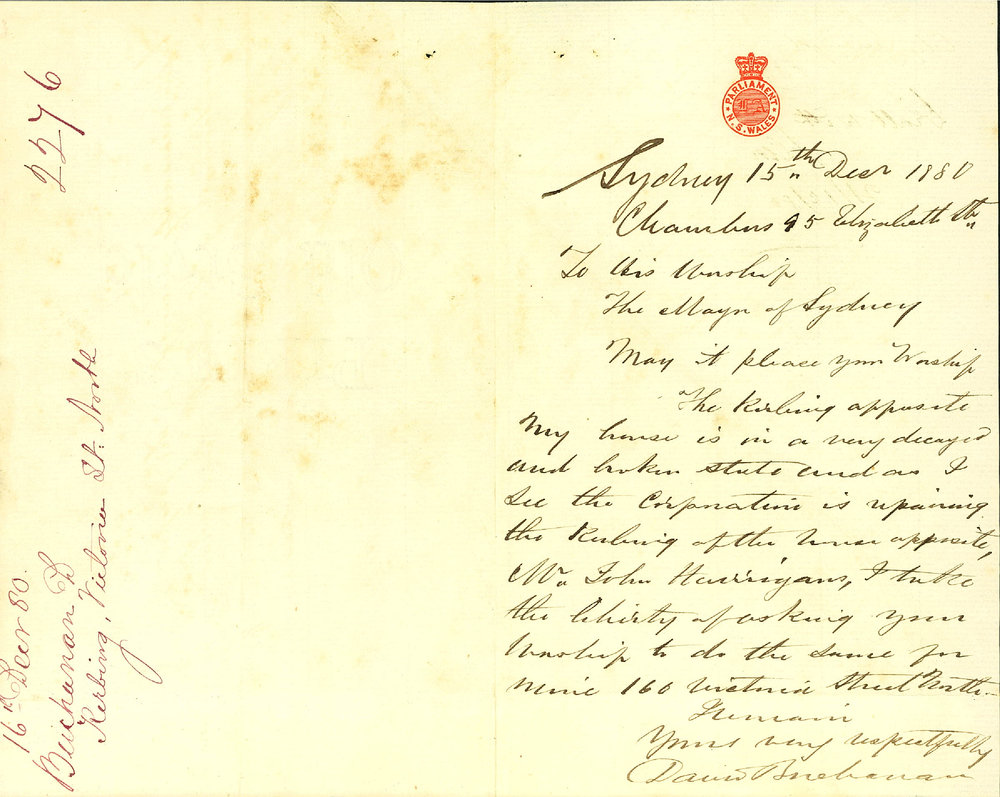 2276
16th Decr 80.
Buchanan D
Kerbing, Victoria St. North
PARLIAMENT
N.S. WALES
Sydney 15th Decr 1880
Chambers 95 Elizabeth St
To His Worship
The Mayor of Sydney
May it please your Worship
The Kerbing opposite
My house is in a very decayed
and broken state and as I
see the Corporation is repairing
the Kerbing of the house opposite,
Mr John Harrigans, I take
the liberty of asking your
Worship to do the same for
mine 160 Victoria Street North—
I remain
Yours very respectfully
David Buchanan